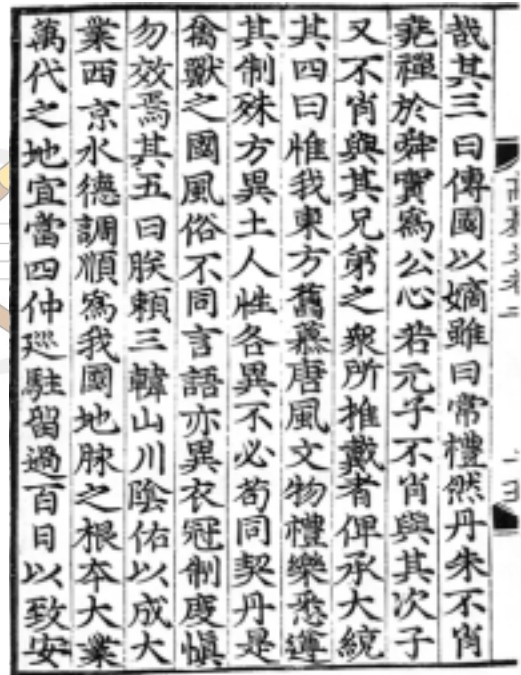 哉其三曰傳國以嫡雖曰常禮然丹朱不肖
堯禪於舜實爲公心若元子不肖與其次子
又不肖與其兄第之衆所推戴者俾承大統
其四曰惟我東方舊慕唐風文物禮樂悉遵
其制殊方異土人性各異不必苟同契丹是
禽獸之國風俗不同言語亦異衣冠制度愼
勿效焉其五曰朕賴三韓山川陰佑以成大
業西京水德調順爲我國地脉之根夲大業
萬代之地宜當四仲巡駐留過百日以致安